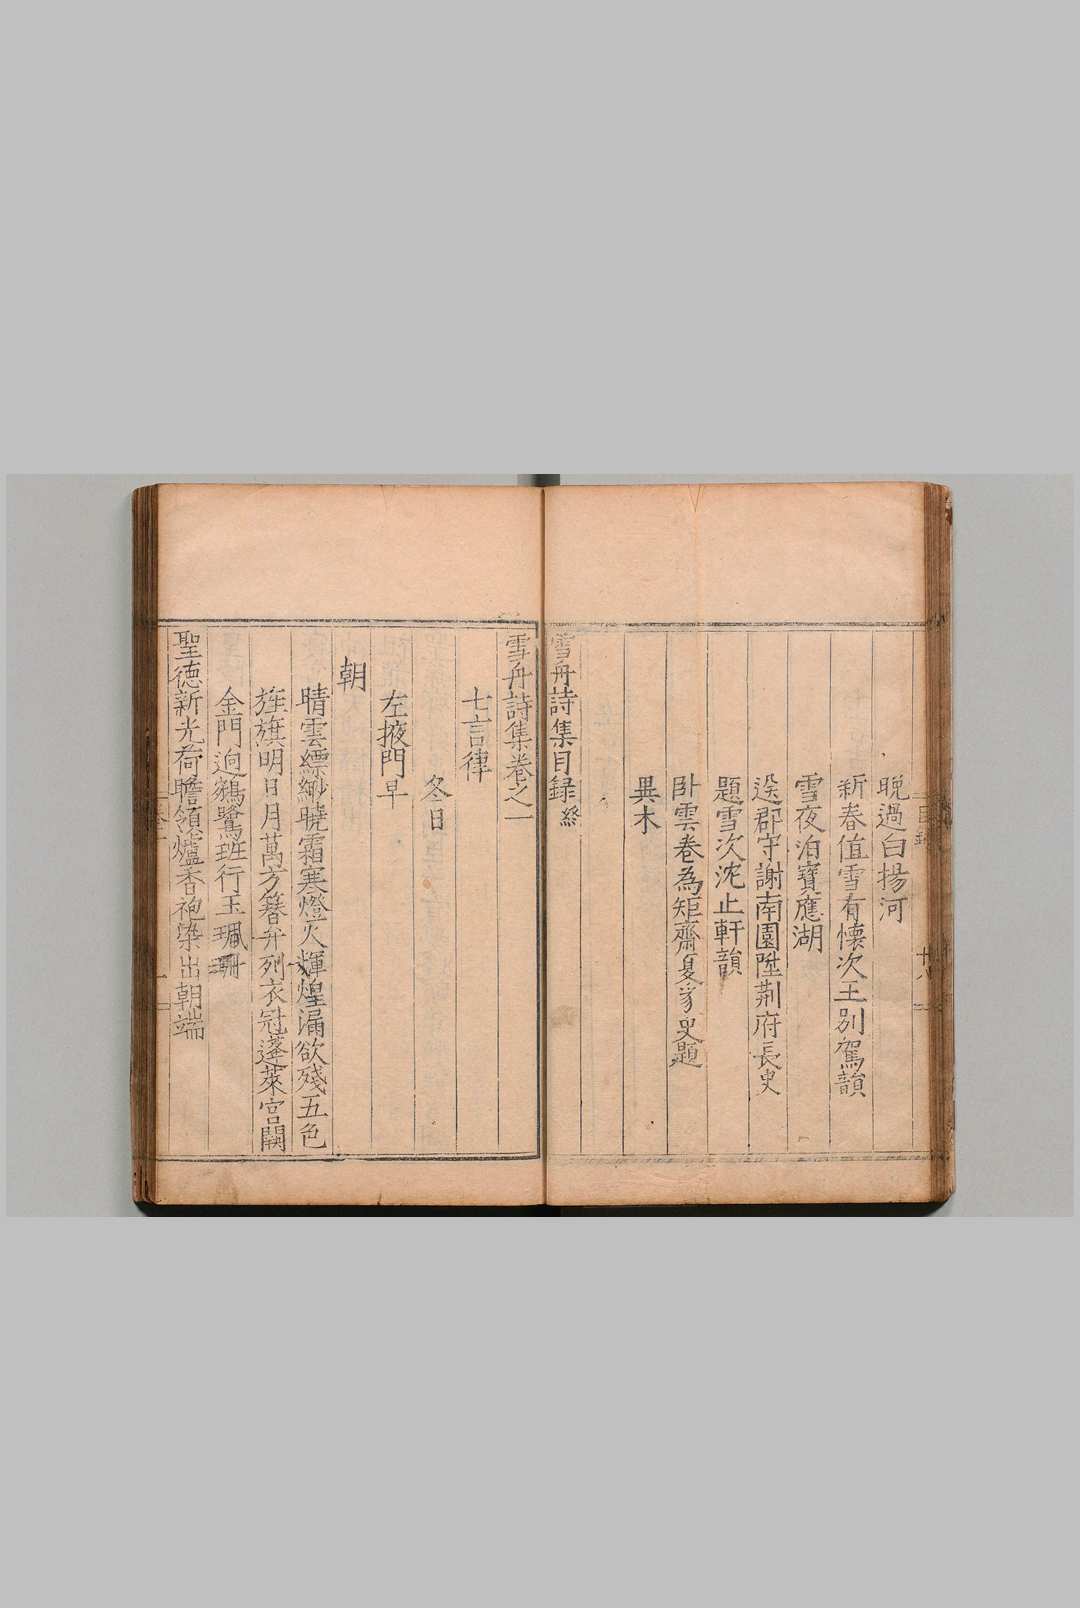 晚過白揚河
新春值雪有懷次王別駕韻
雪夜泊寶應湖
送郡守謝南園陞荆府長史
題雪次沈止軒韻
卧雲卷為矩齋夏
史題
異木
雪舟詩集目録終
雪舟詩集卷之一
七言律
冬日
左掖門早
朝
晴雲縹緲曉霜寒燈火輝煌漏欲殘五色
旌旗明日月萬方簪弁列衣冠蓬萊宮闕
金門逈鵷鷺班行玉珮珊
聖德新光荷瞻領爐香袍染出朝端